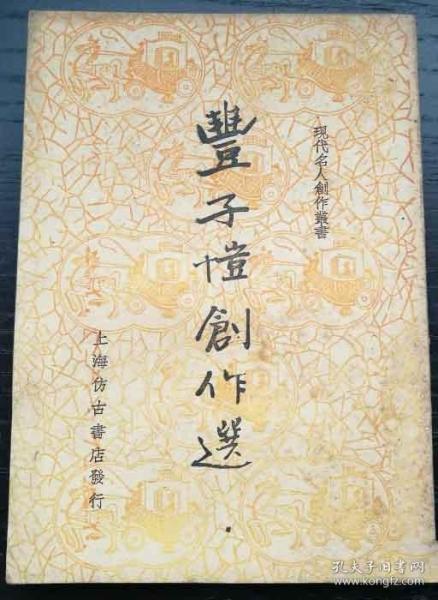 現代名人創作叢書
豐子愷創作選
上海仿古書店發行
孔夫子旧书网
www.kongfz.com